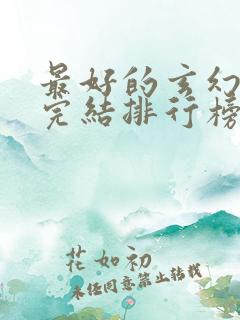 最好的玄幻
完结排行榜
花如初
未经同意禁止转载